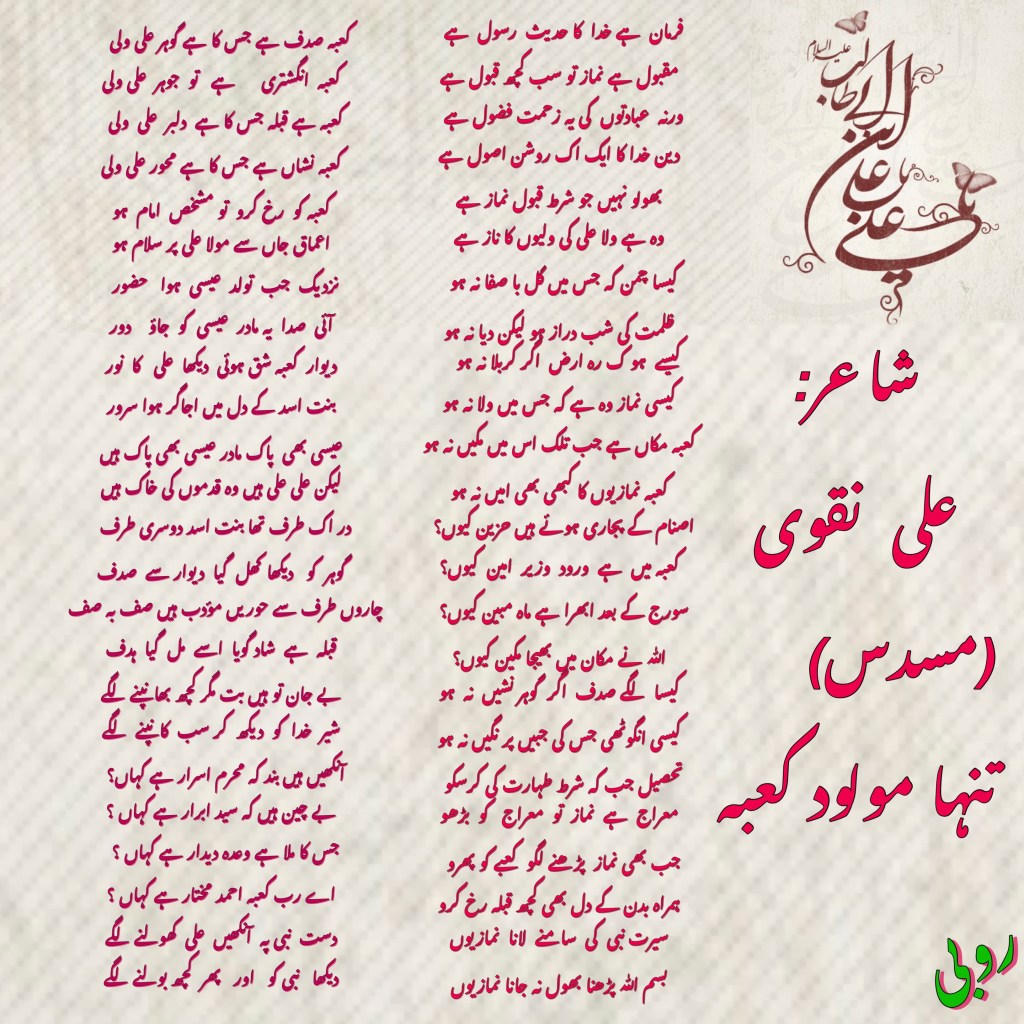 علی ابن ابی طالب
علیہ السلام
شاعر:
علی نقوی
(مسدس)
تنہا مولود کعبہ
فرمان ہے خدا کا حدیث رسول ہے
مقبول ہے نماز تو سب کچھ قبول ہے
ورنہ عبادتوں کی یہ زحمت فضول ہے
دین خدا کا ایک اک روشن اصول ہے
بھولو نہیں جو شرط قبول نماز ہے
وہ ہے ولا علی کی ولیوں کا ناز ہے
کیسا چمن کہ جس میں گل با صفا نہ ہو
ظلمت کی شب دراز ہو لیکن دیا نہ ہو
کیسے ہو ک رہ ارض اگر کربلا نہ ہو
کیسی نماز وہ ہے کہ جس میں ولا نہ ہو
کعبہ مکاں ہے جب تلک اس میں مکیں نہ ہو
کعبہ نمازیوں کا کبھی بھی امیں نہ ہو
اصنام کے پجاری ہوئے ہیں حزین کیوں؟
کعبہ میں ہے ورود وزیر امین کیوں؟
سورج کے بعد ابھرا ہے ماہ مبین کیوں؟
اللہ نے مکان میں بھیجا مکین کیوں؟
کیسا لگے صدف اگر گوہر نشیں نہ ہو
کیسی انگوٹھی جس کی جبیں پر نگیں نہ ہو
تحصیل جب کہ شرط طہارت کی کرسکو
معراج ہے نماز تو معراج کو بڑھو
جب بھی نماز پڑھنے لگو کعبے کو پھرو
ہمراہ بدن کے دل بھی کچھ قبلہ رخ کرو
سیرت نبی کی سامنے لانا نمازیوں
بسم اللہ پڑھنا بھول نہ جانا نمازیوں
کعبہ صدف ہے جس کا ہے گوہر علی ولی
کعبہ انگشتری ہے تو جوہر علی ولی
کعبہ ہے قبلہ جس کا ہے دلبر علی ولی
کعبہ نشاں ہے جس کا ہے محور علی ولی
کعبہ کو رخ کرو تو مشخص امام ہو
اعماق جاں سے مولا علی پر سلام ہو
نزدیک جب تولد عیسی ہوا حضور
آئی صدا یہ مادر عیسی کو جاؤ دور
دیوار کعبہ شق ہوئی دیکھا علی کا نور
بنت اسد کے دل میں اجاگر ہوا سرور
عیسی بھی پاک مادر عیسی بھی پاک ہیں
لیکن علی علی ہیں وہ قدموں کی خاک ہیں
در اک طرف تھا بنت اسد دوسری طرف
گوہر کو دیکھا کھل گیا دیوار سے صدف
چاروں طرف سے حوریں مؤدب ہیں صف بہ صف
قبلہ ہے شاد گویا اسے مل گیا ہدف
بے جان تو ہیں بت مگر کچھ بھانپنے لگے
شیر خدا کو دیکھ کر سب کانپنے لگے
آنکھیں ہیں بند کہ محرم اسرار ہے کہاں؟
بے چین ہیں کہ سید ابرار ہے کہاں ؟
جس کا ملا ہے وعدہ دیدار ہے کہاں ؟
اے رب کعبہ احمد مختار ہے کہاں ؟
دست نبی پہ آنکھیں علی کھولنے لگے
دیکھا نبی کو اور پھر کچھ بولنے لگے
روبی